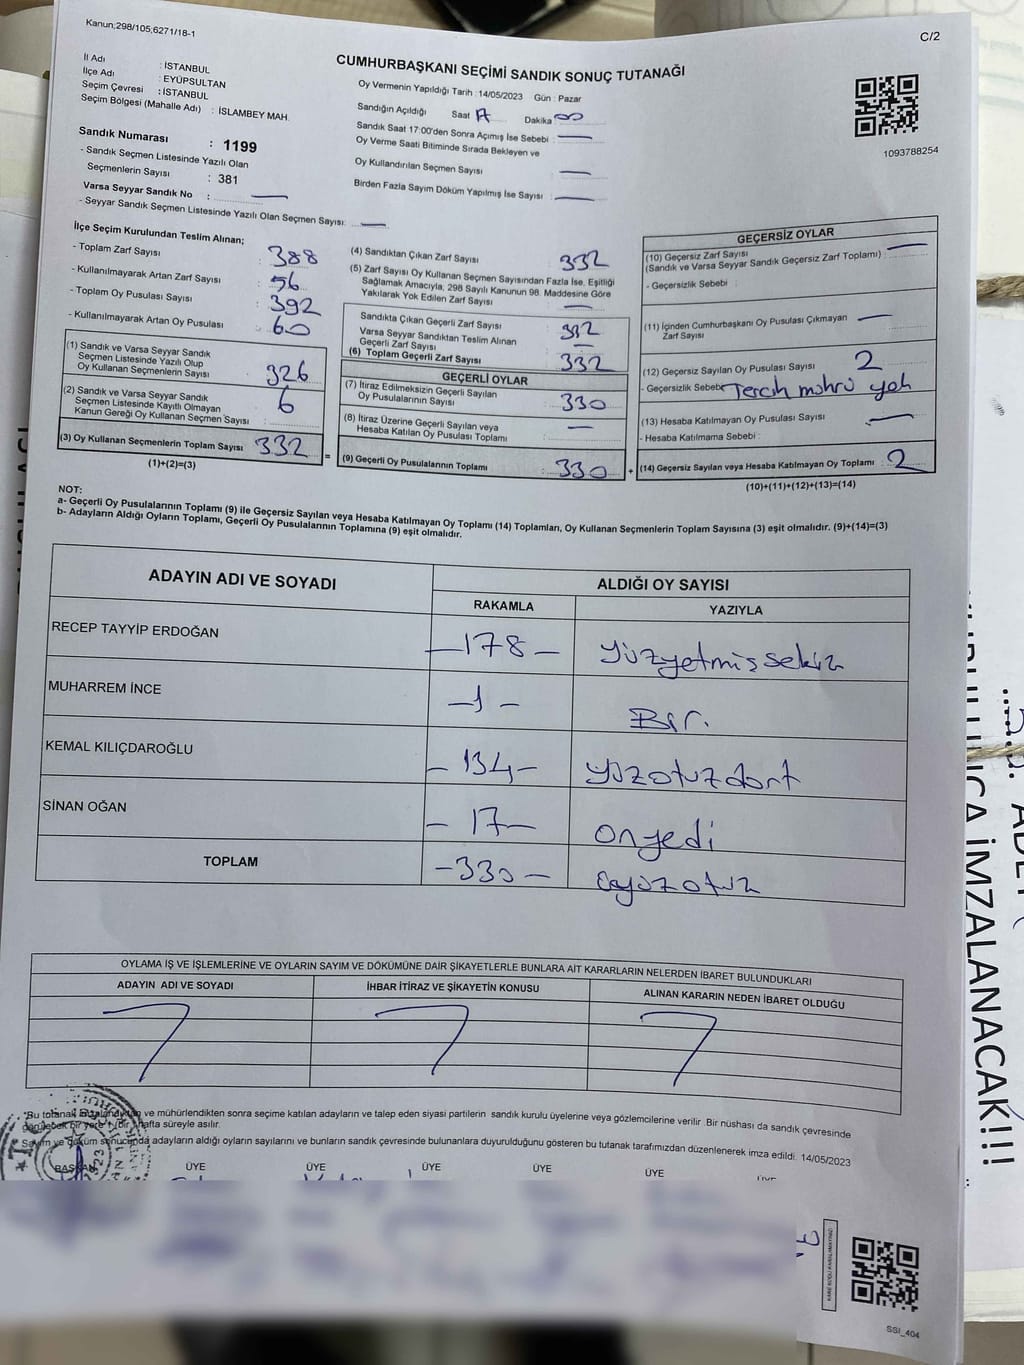 Kanun;298/105;6271/18-1
C/2
CUMHURBAŞKANI SEÇİMİ SANDIK SONUÇ TUTANAĞI
İl Adı : İSTANBUL
İlçe Adı : EYÜPSULTAN
Seçim Çevresi : İSTANBUL
Seçim Bölgesi (Mahalle Adı) : İSLAMBEY MAH.
Sandık Numarası : 1199
- Sandık Seçmen Listesinde Yazılı Olan
Seçmenlerin Sayısı : 381
Varsa Seyyar Sandık No :
- Seyyar Sandık Seçmen Listesinde Yazılı Olan Seçmen Sayısı:
Oy Vermenin Yapıldığı Tarih : 14/05/2023 Gün : Pazar
Sandığın Açıldığı Saat 17 Dakika 00
Sandık Saat 17:00'den Sonra Açımış İse Sebebi :
Oy Verme Saati Bitiminde Sırada Bekleyen ve
Oy Kullandırılan Seçmen Sayısı :
Birden Fazla Sayım Döküm Yapılmış İse Sayısı :
1093788254
İlçe Seçim Kurulundan Teslim Alınan;
- Toplam Zarf Sayısı : 388
- Kullanılmayarak Artan Zarf Sayısı : 56
- Toplam Oy Pusulası Sayısı : 392
- Kullanılmayarak Artan Oy Pusulası : 60
(1) Sandık ve Varsa Seyyar Sandık
Seçmen Listesinde Yazılı Olup
Oy Kullanan Seçmenlerin Sayısı : 326
(2) Sandık ve Varsa Seyyar Sandık
Seçmen Listesinde Kayıtlı Olmayan
Kanun Gereği Oy Kullanan Seçmen Sayısı : 6
(3) Oy Kullanan Seçmenlerin Toplam Sayısı : 332
(1)+(2)=(3)
(4) Sandıktan Çıkan Zarf Sayısı : 332
(5) Zarf Sayısı Oy Kullanan Seçmen Sayısından Fazla İse, Eşitliği
Sağlamak Amacıyla, 298 Sayılı Kanunun 98. Maddesine Göre
Yakılarak Yok Edilen Zarf Sayısı :
Sandıkta Çıkan Geçerli Zarf Sayısı : 332
Varsa Seyyar Sandıktan Teslim Alınan
Geçerli Zarf Sayısı :
(6) Toplam Geçerli Zarf Sayısı : 332
GEÇERLİ OYLAR
(7) İtiraz Edilmeksizin Geçerli Sayılan
Oy Pusulalarının Sayısı : 330
(8) İtiraz Üzerine Geçerli Sayılan veya
Hesaba Katılan Oy Pusulası Toplamı :
(9) Geçerli Oy Pusulalarının Toplamı : 330 +
GEÇERSİZ OYLAR
(10) Geçersiz Zarf Sayısı
(Sandık ve Varsa Seyyar Sandık Geçersiz Zarf Toplamı) :
- Geçersizlik Sebebi :
(11) İçinden Cumhurbaşkanı Oy Pusulası Çıkmayan
Zarf Sayısı :
(12) Geçersiz Sayılan Oy Pusulası Sayısı : 2
- Geçersizlik Sebebi : Tercih mührü yok
(13) Hesaba Katılmayan Oy Pusulası Sayısı :
- Hesaba Katılmama Sebebi :
(14) Geçersiz Sayılan veya Hesaba Katılmayan Oy Toplamı : 2
(10)+(11)+(12)+(13)=(14)
NOT:
a- Geçerli Oy Pusulalarının Toplamı (9) ile Geçersiz Sayılan veya Hesaba Katılmayan Oy Toplamı (14) Toplamları, Oy Kullanan Seçmenlerin Toplam Sayısına (3) eşit olmalıdır. (9)+(14)=(3)
b- Adayların Aldığı Oyların Toplamı, Geçerli Oy Pusulalarının Toplamına (9) eşit olmalıdır.
ADAYIN ADI VE SOYADI ALDIĞI OY SAYISI
RAKAMLA YAZIYLA
RECEP TAYYİP ERDOĞAN -178- Yüzyetmişsekiz
MUHARREM İNCE -1- Bir.
KEMAL KILIÇDAROĞLU -134- Yüzotuzdört
SİNAN OĞAN -17- onyedi
TOPLAM -330- Üçyüzotuz
OYLAMA İŞ VE İŞLEMLERİNE VE OYLARIN SAYIM VE DÖKÜMÜNE DAİR ŞİKAYETLERLE BUNLARA AİT KARARLARIN NELERDEN İBARET BULUNDUKLARI
ADAYIN ADI VE SOYADI İHBAR İTİRAZ VE ŞİKAYETİN KONUSU ALINAN KARARIN NEDEN İBARET OLDUĞU
"Bu tutanak ve mühürlendikten sonra seçime katılan adayların ve talep eden siyasi partilerin sandık kurulu üyelerine veya gözlemcilerine verilir .Bir nüshası da sandık çevresinde
görülebilecek bir yere 1 (bir) hafta süreyle asılır.
Sayım ve döküm sonucunda adayların aldığı oyların sayılarını ve bunların sandık çevresinde bulunanlara duyurulduğunu gösteren bu tutanak tarafımızdan düzenlenerek imza edildi. 14/05/2023
BAŞKAN ÜYE ÜYE ÜYE ÜYE ÜYE ÜYE
SSI_404
İMZALANACAK!!!